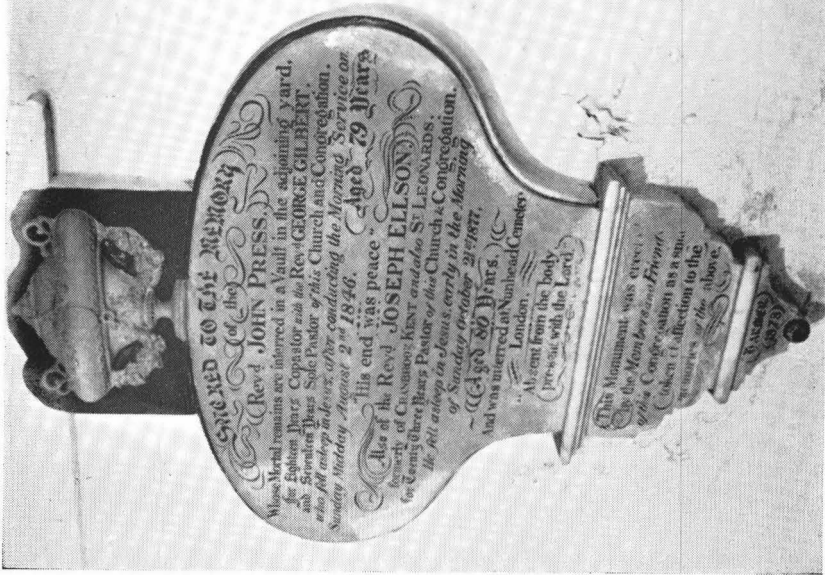 SACRED TO THE MEMORY
of the
Revd. JOHN PRESS.
Whose Mortal remains are interred in a Vault in the adjoining yard.
for Eighteen Years Copastor with the Revd. GEORGE GILBERT,
and Seventeen Years Sole Pastor of this Church and Congregation,
who fell asleep in Jesus, after conducting the Morning Service on
Sunday Midday August 2nd 1846. Aged 79 Years
"His end was peace"
Also of the Revd JOSEPH ELLSON,
formerly of CRANBROOK KENT and also ST LEONARDS.
for Twenty Three Years Pastor of this Church & Congregation.
He fell asleep in Jesus, early in the Morning
of Sunday October 21st 1877.
Aged 80 Years.
And was interred at Nunhead Cemetery
London.
"Absent from the body
present with the Lord"
This Monument was
by the Members and Friends
of this Congregation as a
token of affection to the
memories of the above.
(1878)